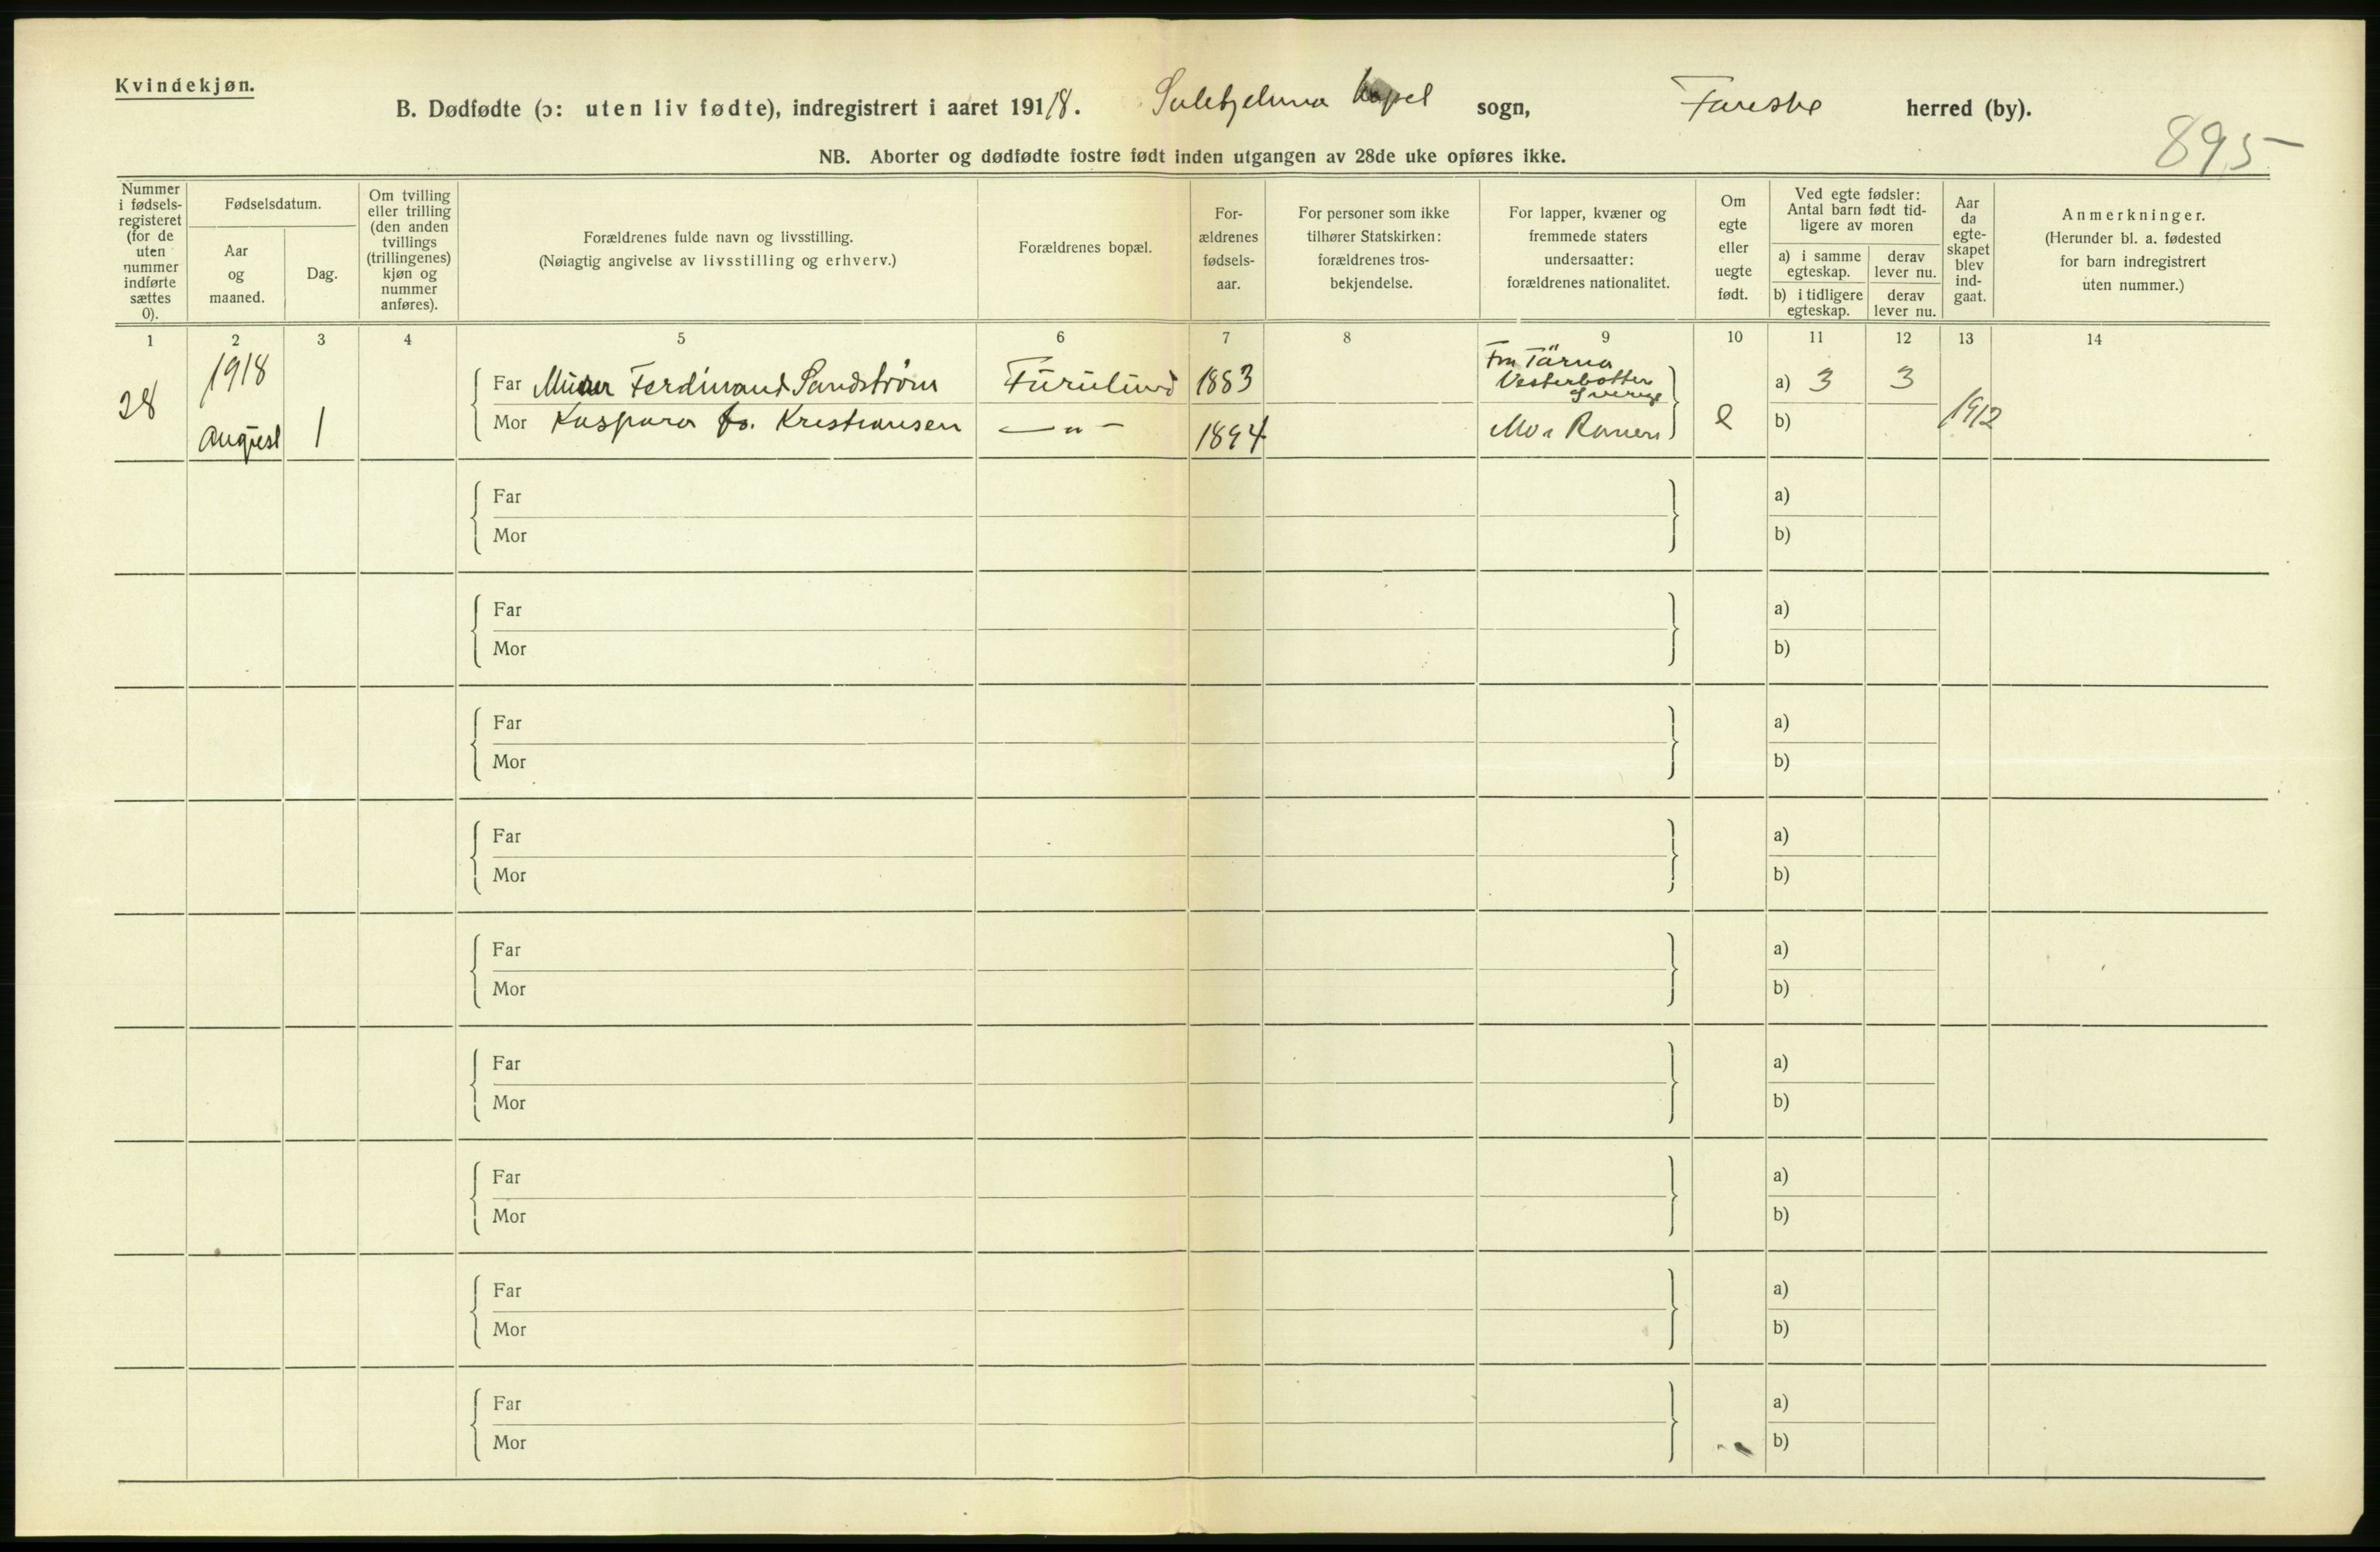 Kvindekjøn.
B. Dødfødte (ɔ: uten liv fødte), indregistrert i aaret 1918. Sulitjelma kapel sogn, Fauske herred (by).
895
NB. Aborter og dødfødte fostre født inden utgangen av 28de uke opføres ikke.
Nummer i fødsels-registeret (for de uten nummer indførte sættes 0).
Fødselsdatum.
Aar og maaned.
Dag.
Om tvilling eller trilling (den anden tvillings (trillingenes) kjøn og nummer anføres).
Forældrenes fulde navn og livsstilling.
(Nøiagtig angivelse av livsstilling og erhverv.)
Forældrenes bopæl.
For-ældrenes fødsels-aar.
For personer som ikke tilhører Statskirken: forældrenes tros-bekjendelse.
For lapper, kvæner og fremmede staters undersaatter: forældrenes nationalitet.
Om egte eller uegte født.
Ved egte fødsler: Antal barn født tid-ligere av moren
a) i samme egteskap.
derav lever nu.
b) i tidligere egteskap.
derav lever nu.
Aar da egte-skapet blev ind-gaat.
Anmerkninger.
(Herunder bl. a. fødested for barn indregistrert uten nummer.)
1 2 3 4 5 6 7 8 9 10 11 12 13 14
28 1918 August 1
Far Miner Ferdinand Sandstrøm Furulund 1883 Fra Tärna Vesterbotten Sverige a) 3 3
Mor Kaspara f. Kristiansen —"— 1894 Mo i Ranen e b) 1912
Far a)
Mor b)
Far a)
Mor b)
Far a)
Mor b)
Far a)
Mor b)
Far a)
Mor b)
Far a)
Mor b)
Far a)
Mor b)
Far a)
Mor b)
Far a)
Mor b)